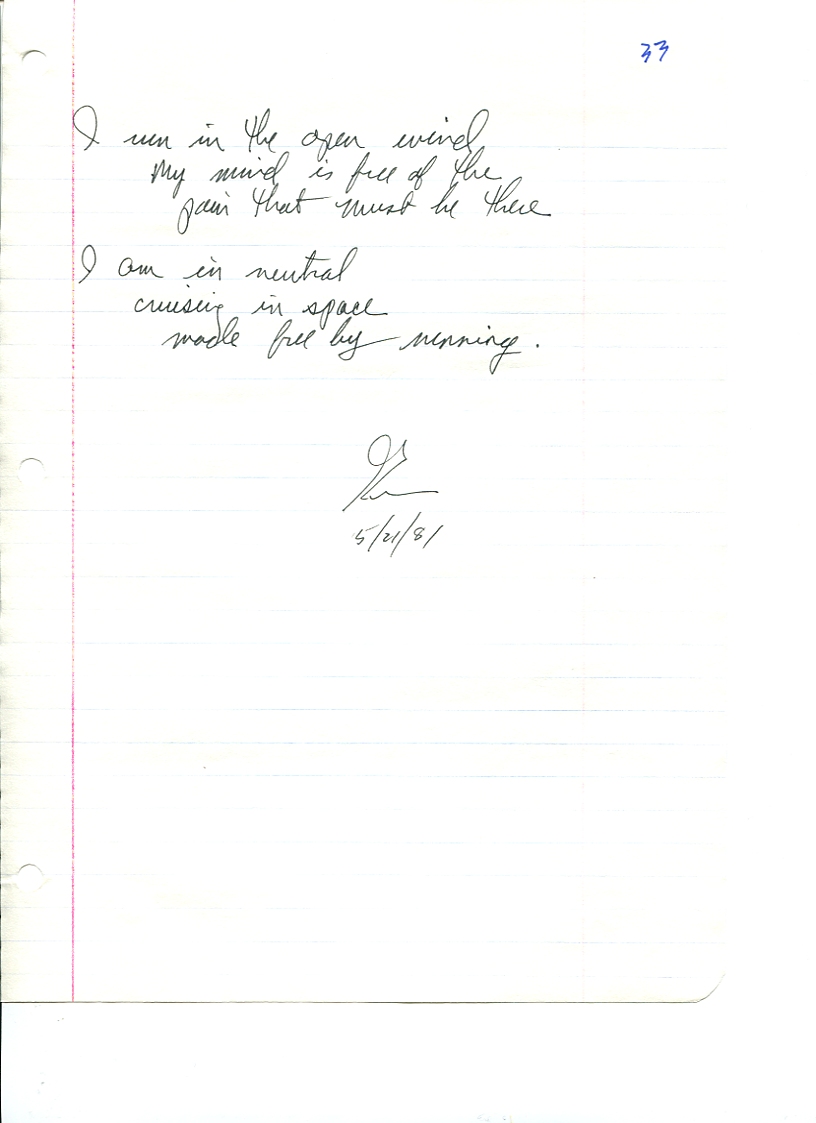 33
I run in the open wind
My mind is free of the
pain that must be there
I am in neutral
cruising in space
made free by running.
5/21/81